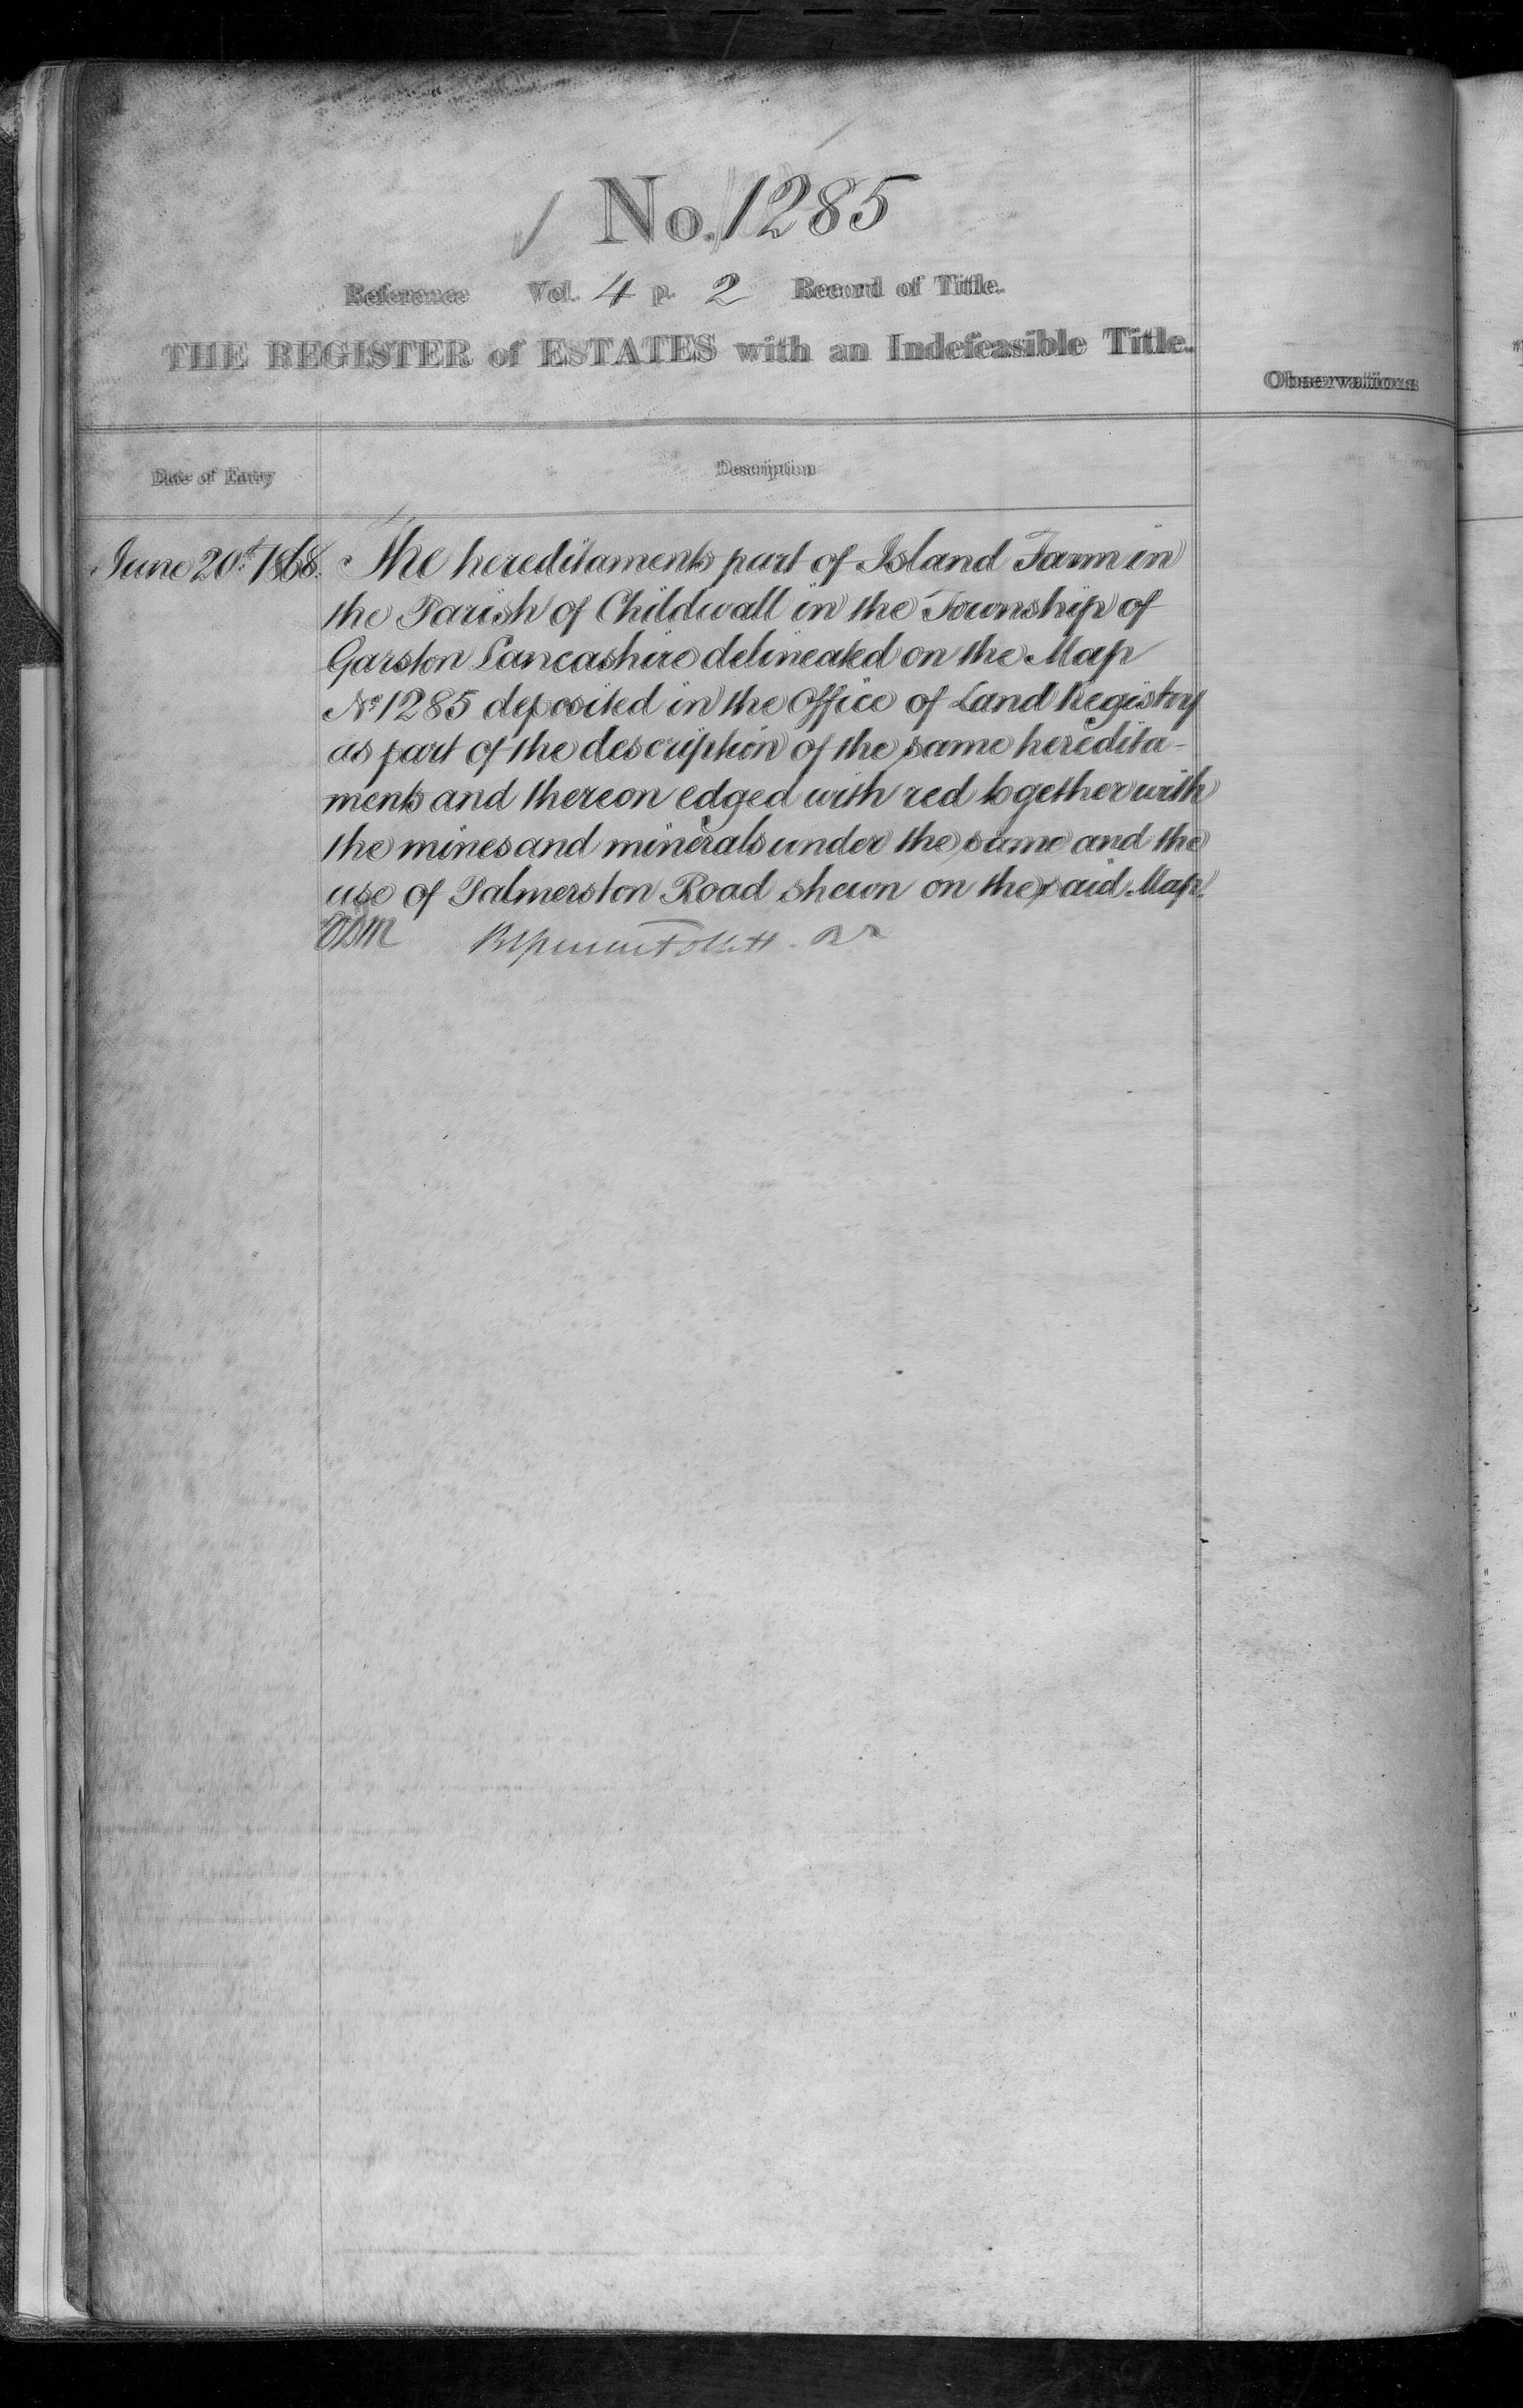 No. 1285
Reference Vol. 4 p. 2 Record of Title.
THE REGISTER of ESTATES with an Indefeasible Title.
Observations
Date of Entry
Description
June 20th 1868. The hereditaments part of Island Farm in
the Parish of Childwall in the Township of
Garston Lancashire delineated on the Map
No 1285 deposited in the Office of Land Registry
as part of the description of the same heredita-
ments and thereon edged with red together with
the mines and minerals under the same and the
use of Palmerston Road shewn on the said Map.